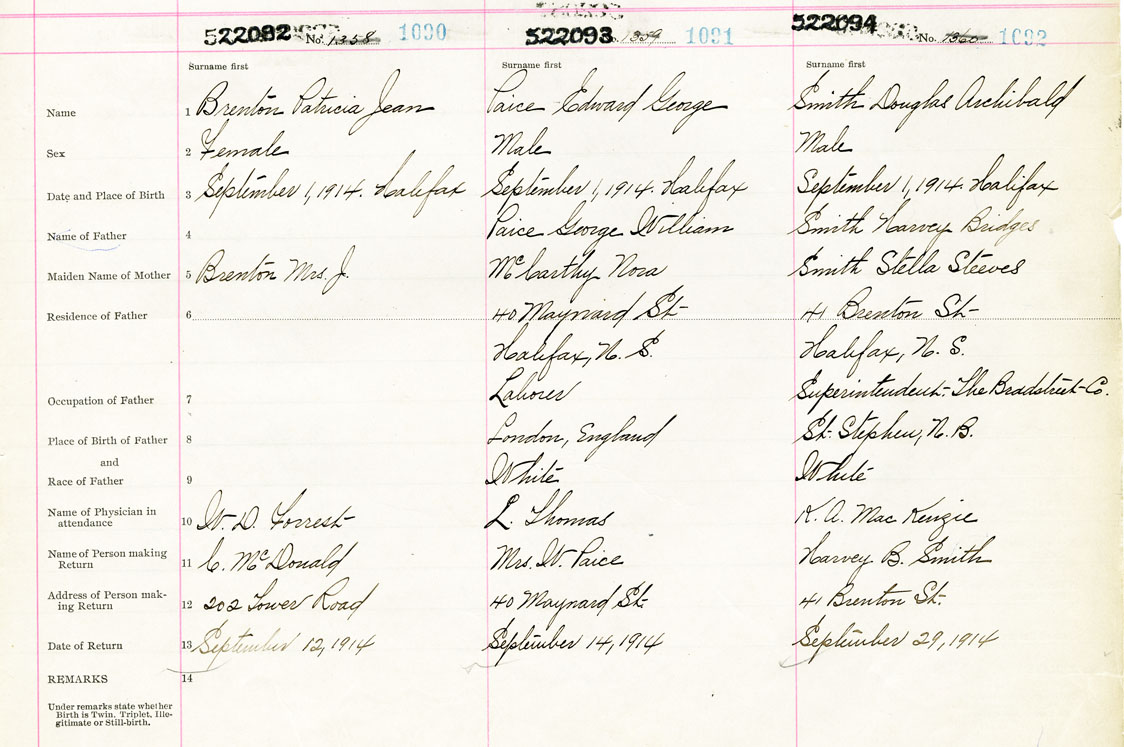 522092 No. 1358 1090 522093 1359 1091 522094 No. 1360 1092
Surname first Surname first Surname first
Name 1 Brenton Patricia Jean Paice Edward George Smith Douglas Archibald
Sex 2 Female Male Male
Date and Place of Birth 3 September 1, 1914. Halifax September 1, 1914. Halifax September 1, 1914. Halifax
Name of Father 4 Paice George William Smith Harvey Bridges
Maiden Name of Mother 5 Brenton Mrs. J. McCarthy Nora Smith Stella Steeves
Residence of Father 6 40 Maynard St. 41 Brenton St.
Halifax, N. S. Halifax, N. S.
Occupation of Father 7 Laborer Superintendent. The Bradstreet Co.
Place of Birth of Father 8 London, England St. Stephen, N. B.
and
Race of Father 9 White White
Name of Physician in
attendance 10 W. D. Forrest L. Thomas K. A. Mac Kenzie
Name of Person making
Return 11 C. McDonald Mrs. W. Paice Harvey B. Smith
Address of Person mak-
ing Return 12 202 Tower Road 40 Maynard St. 41 Brenton St.
Date of Return 13 September 12, 1914 September 14, 1914 September 29, 1914
REMARKS 14
Under remarks state whether
Birth is Twin, Triplet, Ille-
gitimate or Still-birth.